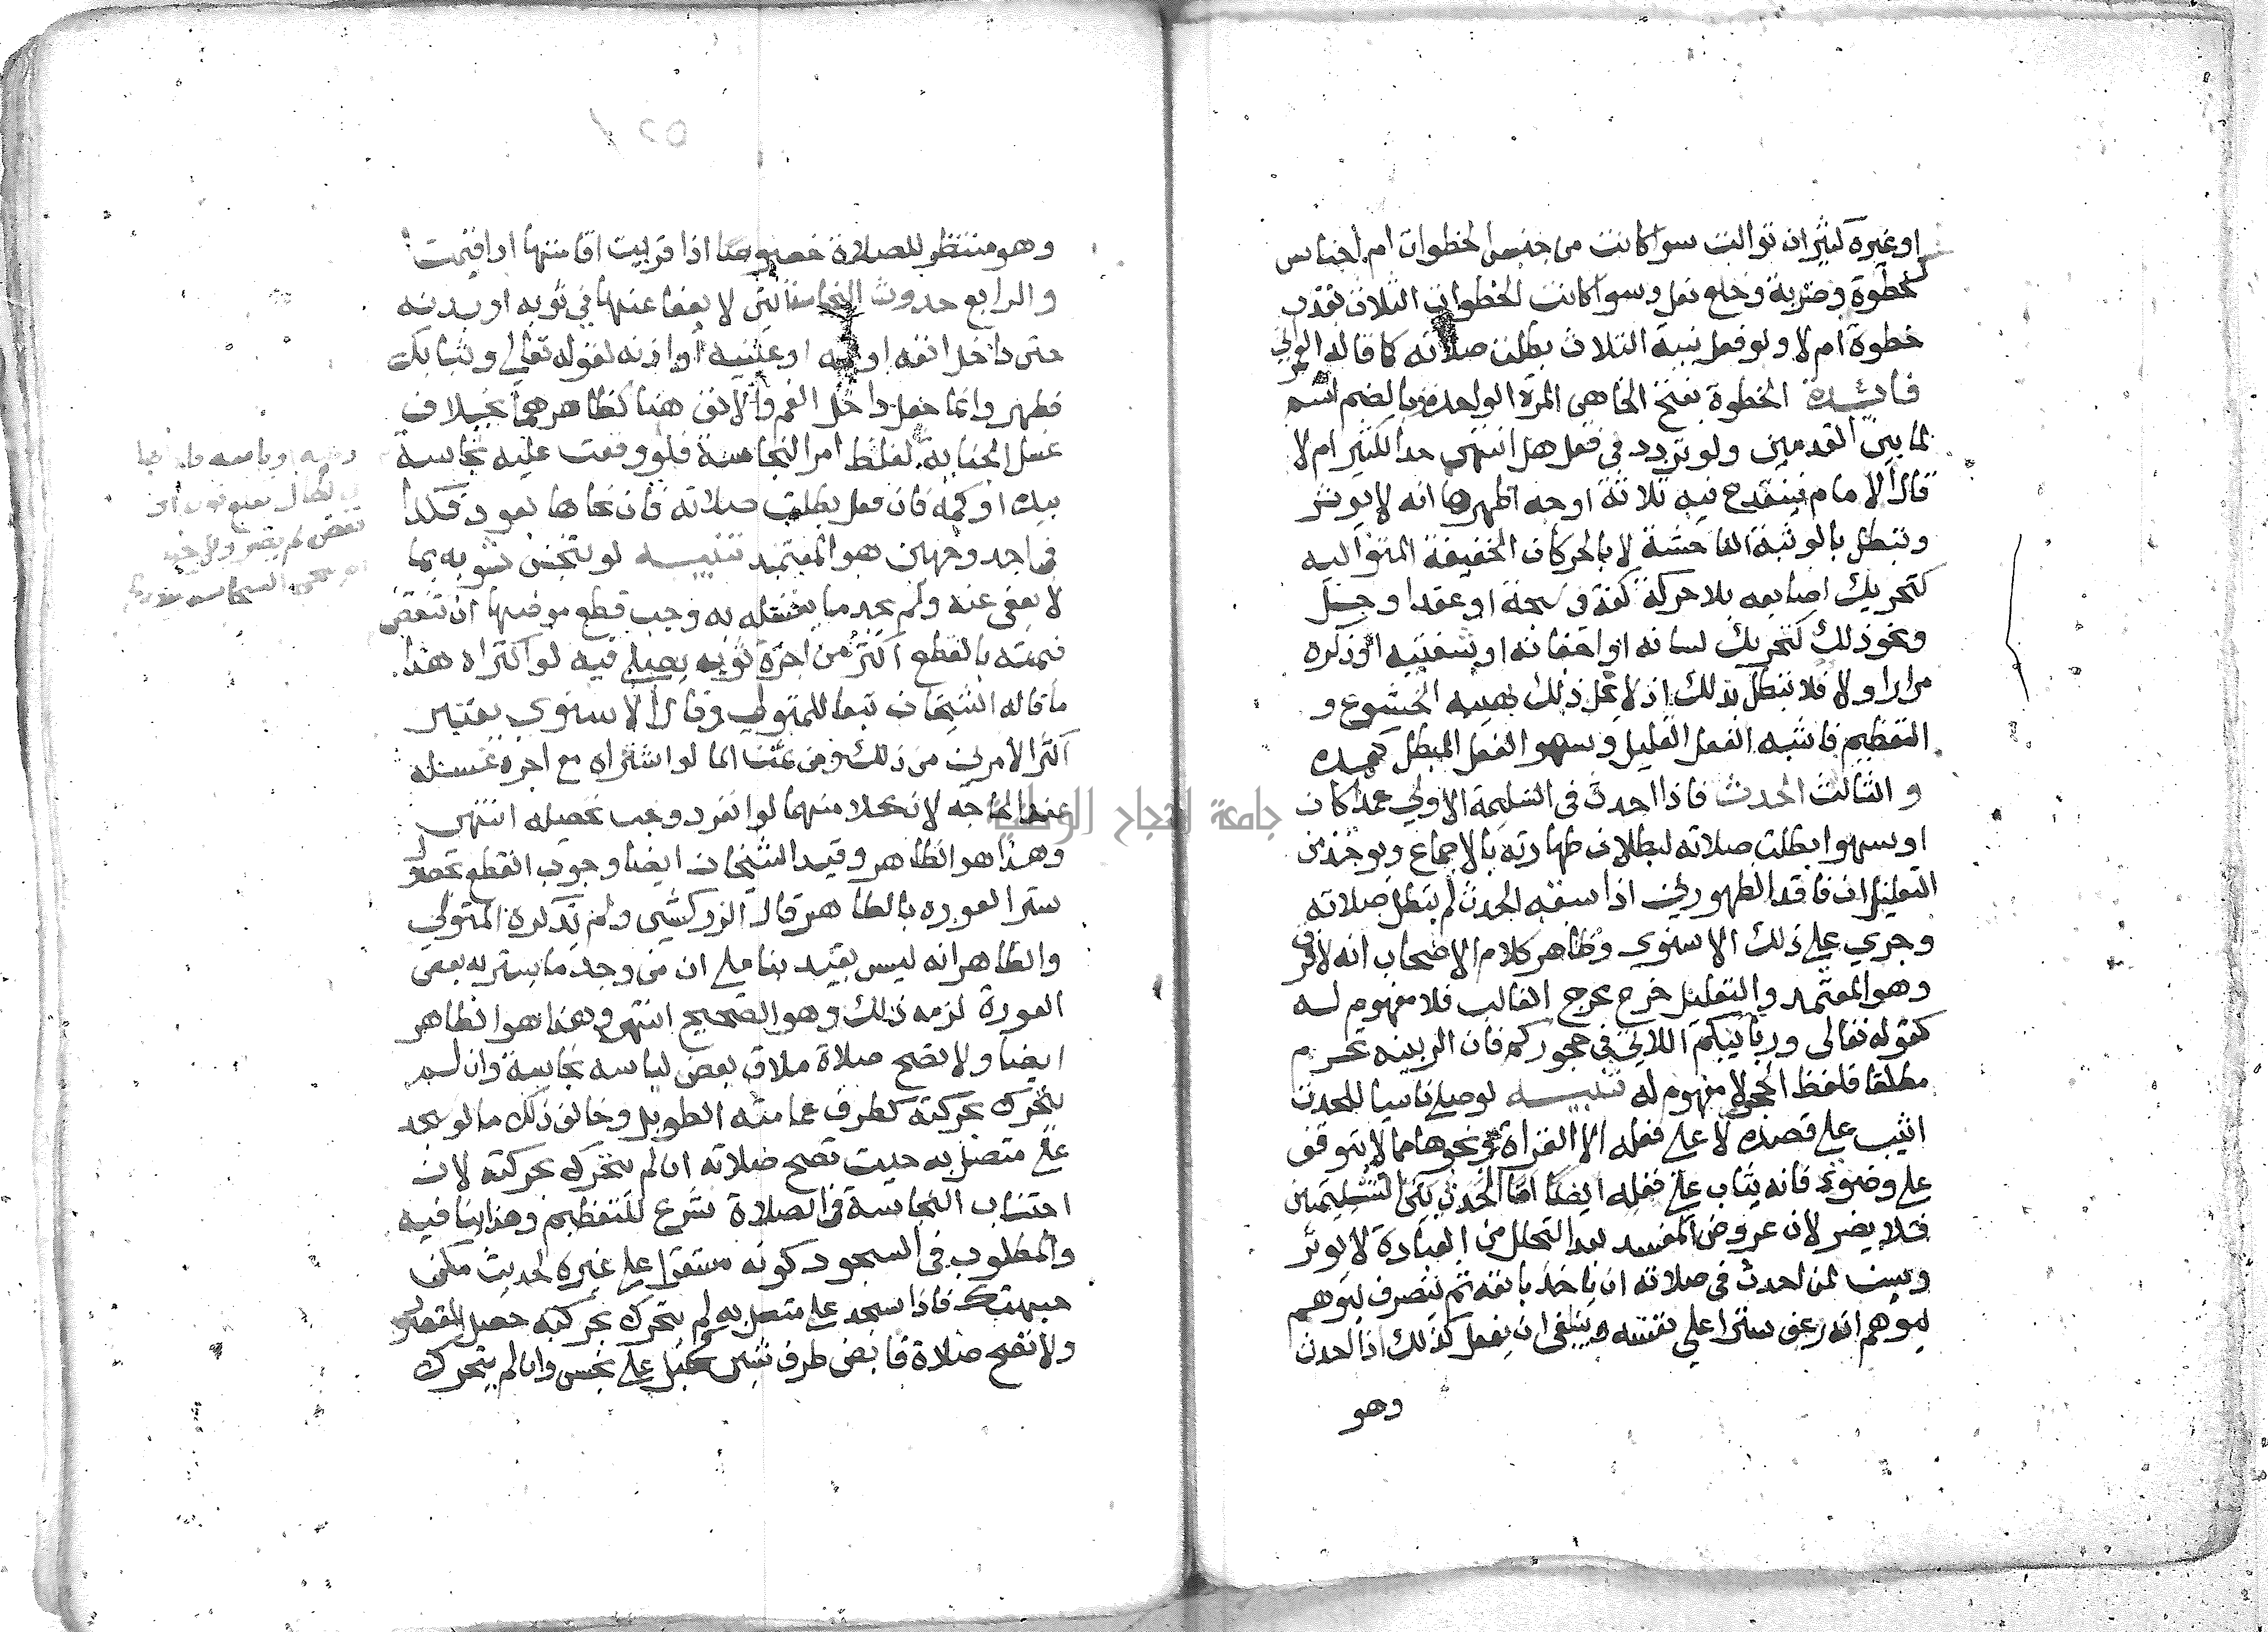 اوغيره كثيران توالت سوا كانت من جنس الخطوات ام اجناس
كخطوة وضربة وخلع نعل وسوا كانت الخطوات الثلاث بقدر
خطوة ام لا ولو فعل بنية الثلاث بطلت صلاته كما قاله العمراني
فائدة الخطوة بفتح الخا هي المرة الواحدة وبالضم اسم
لما بين القدمين ولو تردد في فعل هل انتهى حد الكثير ام لا
قال الامام ينقدح فيه ثلاثة اوجه اظهرها انه لا يوثر
وتبطل بالوثبة الفاحشة لا بالحركات الخفيفة المتواليه
كتحريك اصابعه بلا حركة كفه في سبحة او عقد او حل
ونحو ذلك كتحريك لسانه او اجفانه او شفتيه او ذكره
مرارا ولا فلا تبطل بذلك اذ لا يخل ذلك بهيية الخشوع و
التعظيم فاشبه الفعل القليل وسهو الفعل المبطل كعمده
والثالث الحدث فاذا احدث في التسليمة الاولي عمدا كان
او سهوا بطلت صلاته لبطلان طهارته بالاجماع ويوخذ من
التعليل ان فاقد الطهورين اذا سبقه الحدث لم تبطل صلاته
وجري علي ذلك الاسنوي وظاهر كلام الاصحاب انه لا فرق
وهو المعتمد والتعليل خرج مخرج الغالب فلا مفهوم له
كقوله تعالى وربائبكم اللاتي في حجوركم فان الربيبه تحرم
مطلقا فلفظ الحجور لا مفهوم له تنبيه لو صلي ناسيا للحدث
اثيب علي قصده لا علي فعله الا القراة ونحوها مما لا يتوقف
علي وضوء فانه يثاب علي فعله ايضا اما الحدث بين التسليمتين
فلا يضر لان عروض المفسد بعد التحلل من العبادة لا يوثر
ويسن لمن احدث في صلاته ان ياخذ بانفه ثم ينصرف ليوهم
ليوهم انه رعف سترا علي نفسه وينبغي ان يفعل كذلك اذا احدث
وهو
وهو منتظر للصلاة خصوصا اذا قربت اقامتها او اقيمت
والرابع حدوث النجاسة التي لا يعفا عنها في ثوبه او بدنه
حتى داخل انفه او فمه او عينيه او اذنه لقوله تعالي وثيابك
فطهر وانما جعل داخل الفم والانف هنا كظاهرهما بخلاف
غسل الجنابة لغلظ امر النجاسة فلو وقعت عليه نجاسة
بيده او كمه فان فعل بطلت صلاته فان نحاها بعود فكذا
في احد وجهين هو المعتمد تنبيه لو تنجس ثوبه بما
لا يعفى عنه ولم يجد ما يغسله به وجب قطع موضعها ان تنقص
قيمته بالقطع اكثر من اجرة ثوب يصلي فيه لو اكتراه هذا
ما قاله الشيخان تبعا للمتولي وقال الاسنوي يعتبر
اكثر الامرين من ذلك ومن ثمن الما لو اشتراه مع اجرة غسله
عند الحاجه لان كلا منهما لو انفرد وجب تحصيله انتهى
وهذا هو الظاهر وقيد الشيخان ايضا وجوب القطع بحصول
ستر العورة بالطاهر قال الزركشي ولم يذكره المتولي
والظاهر انه ليس بقيد بنا علي ان من وجد ما يستر به بعض
العورة لزمه ذلك وهو الصحيح انتهى وهذا هو الظاهر
ايضا ولا تصح صلاة ملاق بعض لباسه نجاسة وان لم
يتحرك بحركته كطرف عمامته الطويل وخالف ذلك ما لو سجد
علي متصل به حيث تصح صلاته ان لم يتحرك بحركته لان
اجتناب النجاسة في الصلاة شرع للتعظيم وهذا ينافيه
والمطلوب في السجود كونه مستقرا علي غيره لحديث مكن
جبهتك فاذا سجد علي متصل به لم يتحرك بحركته حصل المقصود
ولا تصح صلاة قابض طرف شي كحبل علي نجس وان لم يتحرك